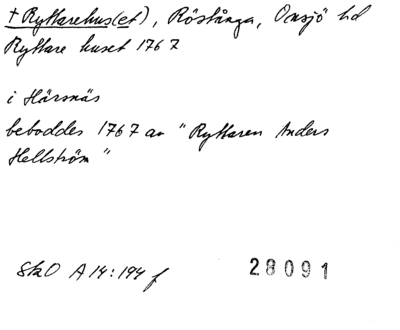 † Ryttarehus(et), Röstånga, Onsjö hd
Ryttare huset 1767
i Härsnäs
beboddes 1767 av "Ryttaren Anders
Hellström"
SkO A14:194 f
28091